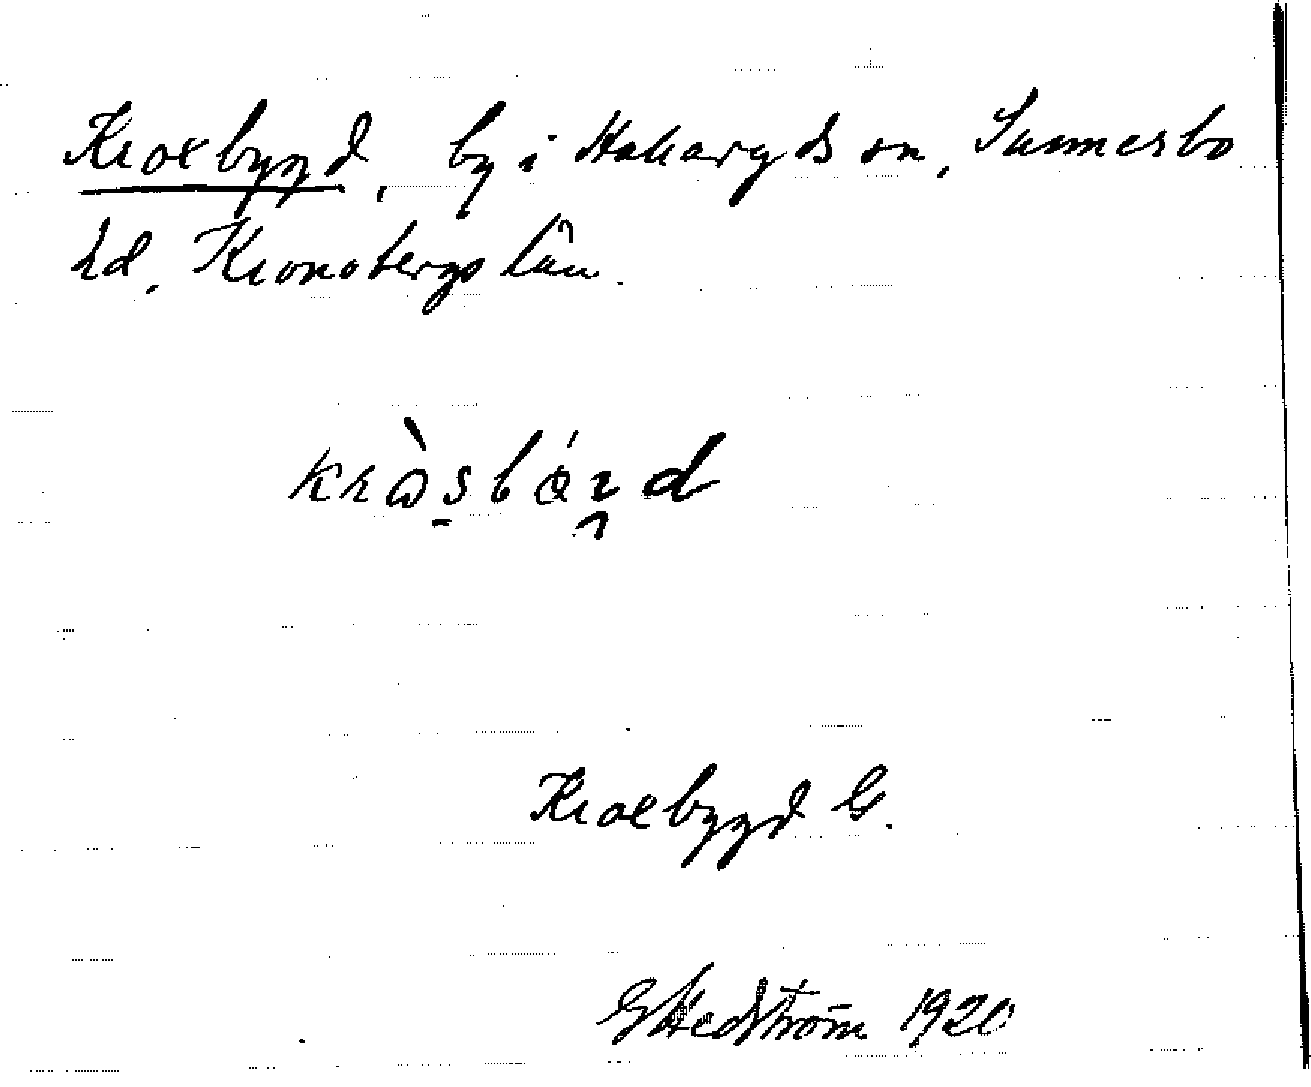 Kroxbygd, by i Hallaryds sn, Sunnerbo
hd, Kronobergs län.
Kroxbygd G.
G Hedström 1920